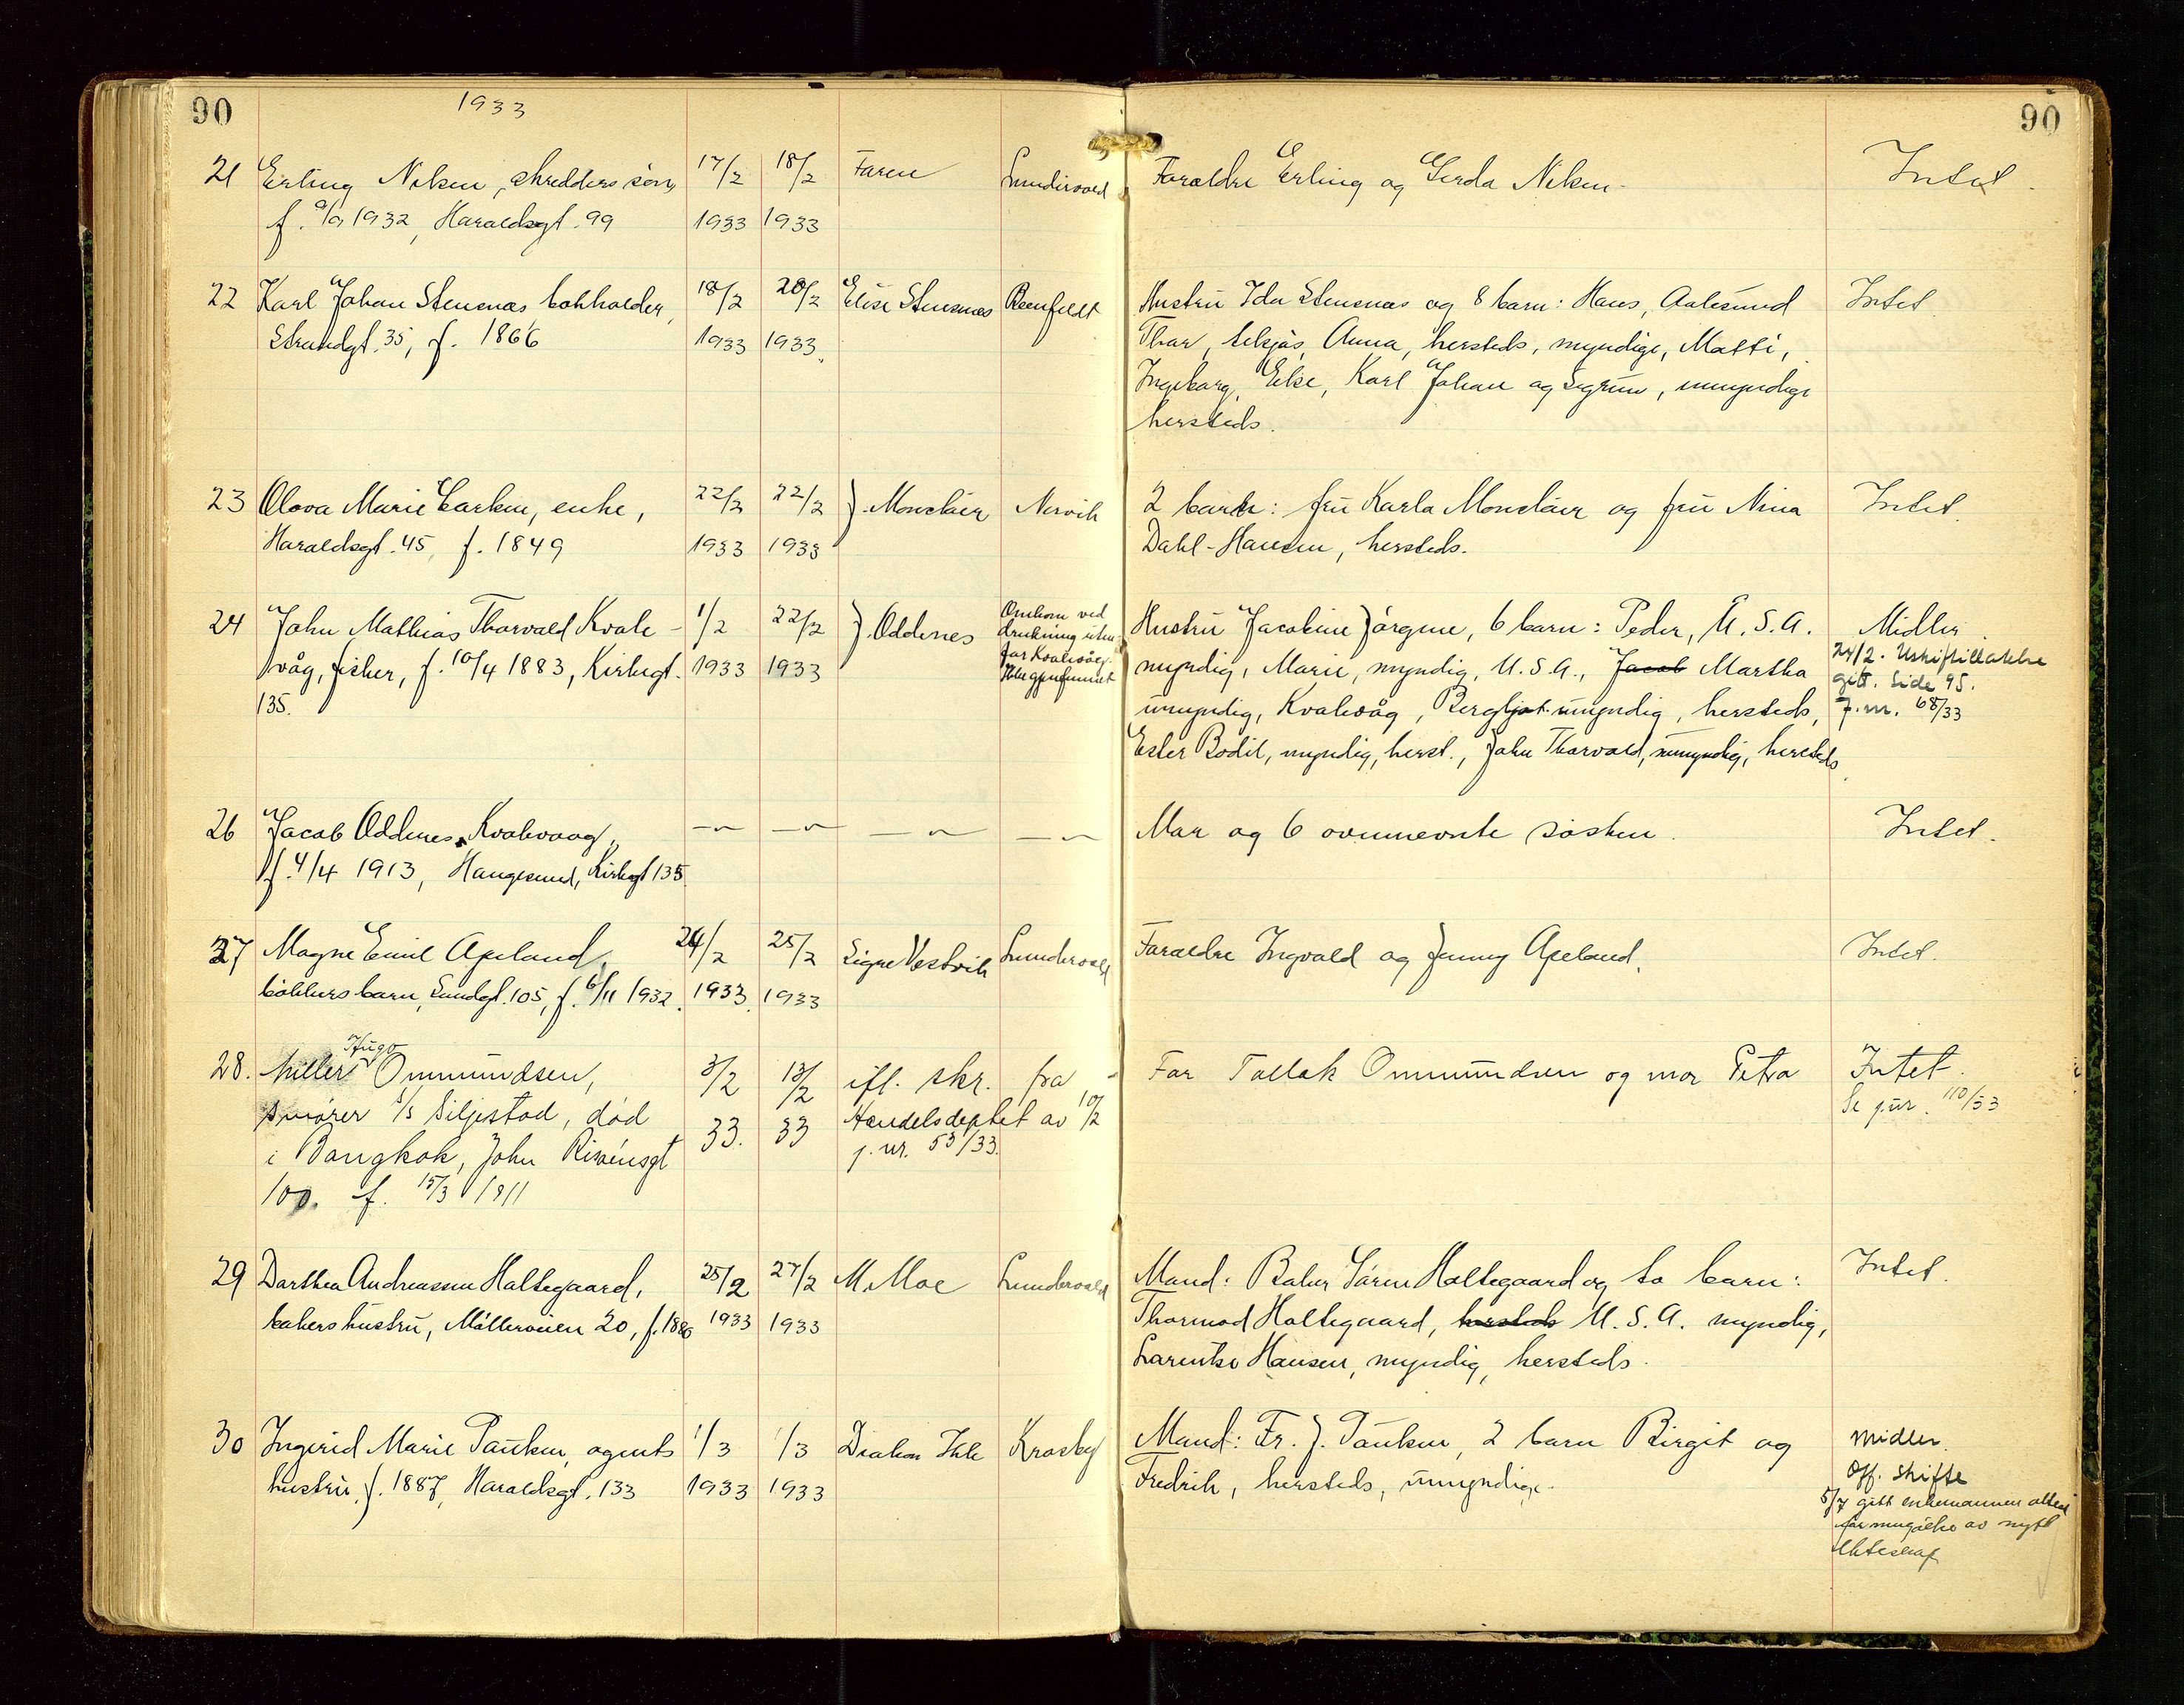 90
1933
90
21 Erling Nilsen, skredders sön, 17/2 18/2 Faren Lundervold Foreldre Erling og Gerda Nilsen. Intet.
f. 9/9 1932, Haraldsgt. 99 1933 1933
22 Karl Johan Stensnæs bokholder, 18/2 20/2 Elise Stensnæs Hustru Ida Stensnæs og 8 barn: Hans, Aalesund Intet.
Strandgt. 35, f. 1866 1933 1933. Thor, tilsjøs, Anna, hersteds, myndige, Matti,
Ingeborg, Else, Karl Johan og Sigrun, umyndige
hersteds.
23 Olava Marie Carlsen, enke, 22/2 22/2 J. Monclair Nervik 2 barn: fru Karla Monclair og fru Nina Intet.
Haraldsgt. 45, f. 1849 1933 1933 Dahl-Hansen, hersteds.
24 John Mathias Thorvald Kvale- 1/2 22/2 J. Oddenes Omkom ved Hustru Jacobine Jörgine, 6 barn: Peder, U.S.A. Midler.
drukning uten-
våg, fisker, f. 10/4 1883, Kirkegt. 1933 1933 for Kvalevåg. myndig, Marie, myndig, U.S.A., Jacob Martha 24/2. Uskiftillatelse
Ikke gjenfunnet gitt. Side 95.
135. umyndig, Kvalevåg, Bergljot umyndig, hersteds, J.nr. 68/33
Ester Bodil, myndig, herst., John Thorvald, umyndig, hersteds.
26 Jacob Oddenes Kvalevaag, — — — — Mor og 6 ovennevnte søsken. Intet.
f. 4/4 1913, Haugesund, Kirkegt 135
27 Magne Emil Apeland, 24/2 25/2 Signe Vestvik Lundervold Foreldre Ingvald og Jenny Apeland. Intet.
bökkers barn, Sundgt. 105, f. 6/11 1932. 1933. 1933
Hugo
28. Miller Ommundsen, 3/2 13/2 ifl. skr. fra Far Tollak Ommundsen og mor Petra Intet.
smører s/s Siljestad, död 33. 33 Handelsdeptet av 10/2 Se jnr. 110/33
i Bangkok, John j. nr. 53/33.
100. f. 15/3 1911
29 Dorthea Andreassen Haltegaard, 25/2 27/2 M. Moe Lundervold Mand: Baker Sören Haltegaard og to barn: Intet.
bakers hustru, Mölleveien 20, f. 1886 1933 1933 Thormod Haltegaard, hersteds U.S.A. myndig,
Larentse Hansen, myndig, hersteds.
30 Ingerid Marie Paulsen, agents 1/3 1/3 Diakon Krosby Mand: Fr. J. Paulsen, 2 barn Birgit og Midler.
hustru, f. 1887, Haraldsgt. 133 1933 1933 Fredrik, hersteds, umyndige. Off. skifte
5/7 gitt enkemannen attest
for inngåelse av nytt
ekteskap